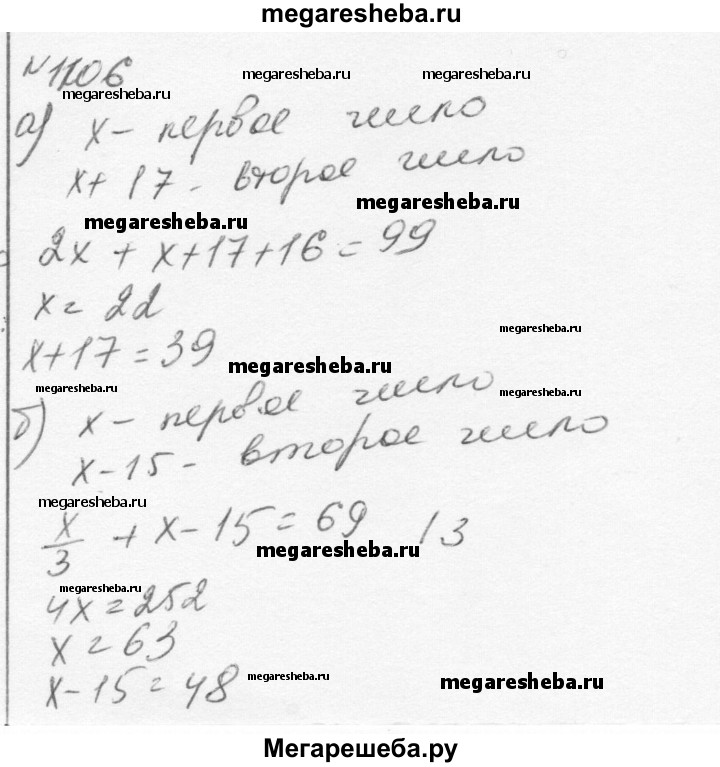 megaresheba.ru
№1106
megaresheba.ru megaresheba.ru
megaresheba.ru
а) х - первое число
х+17 - второе число
megaresheba.ru
megaresheba.ru
2х + х+17+16=99
х=22
megaresheba.ru
х+17=39
megaresheba.ru
megaresheba.ru megaresheba.ru
б) х - первое число
х-15 - второе число
megaresheba.ru
х/3 + х-15=69 /3
megaresheba.ru
megaresheba.ru
4х=252
х=63
х-15=48
megaresheba.ru
megaresheba.ru
Мегарешеба.ру